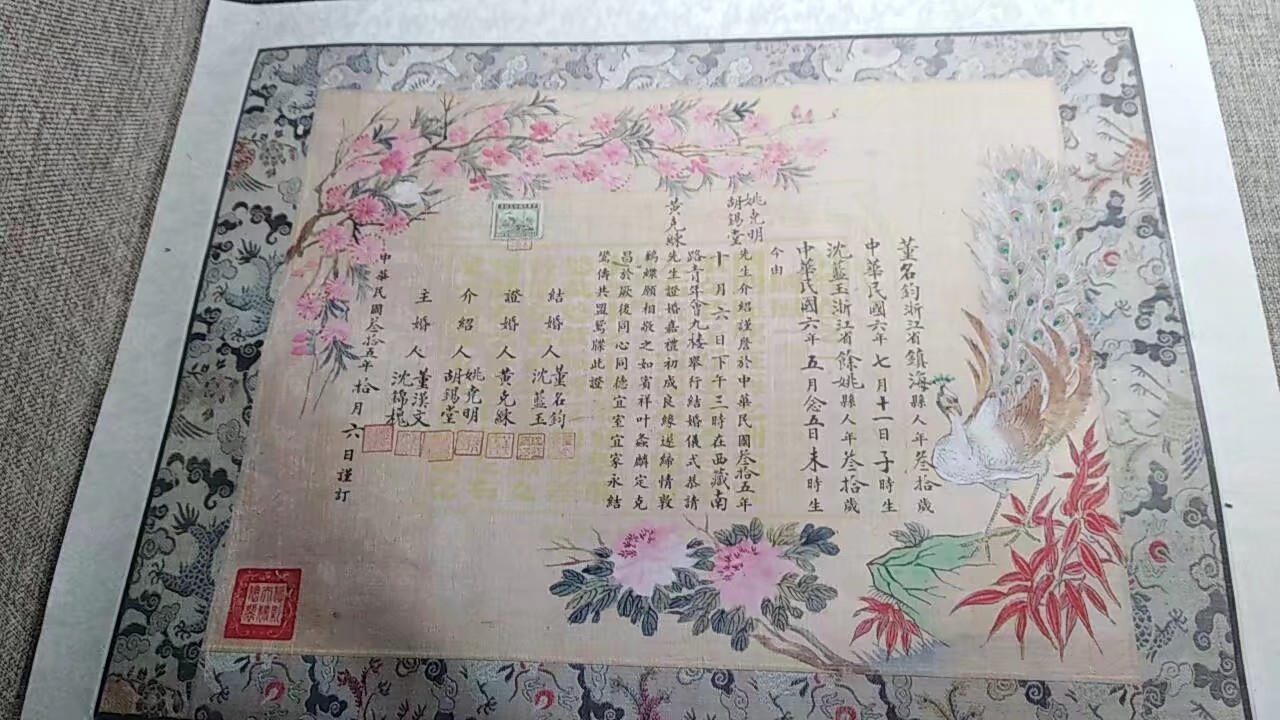 董名鈞浙江省鎮海縣人年叄拾歲
中華民國六年七月十一日子時生
沈藍玉浙江省餘姚縣人年叄拾歲
中華民國六年五月念五日未時生
今由
姚堯明
胡錫堂
先生介紹謹詹於中華民國叄拾五年
十月六日下午三時在西藏南
路青年會九樓舉行結婚儀式恭請
黄克
先生證婚嘉禮初成良緣遂締情敦
鶼鰈願相敬之如賓祥叶螽麟定克
昌於厥後同心同德宜室宜家永結
鸞儔共盟鴛牒此證
結婚人
董名鈞
沈藍玉
證婚人
黄克
介紹人
姚堯明
胡錫堂
主婚人
董漢文
沈錦
中華民國叄拾五年拾月六日謹訂